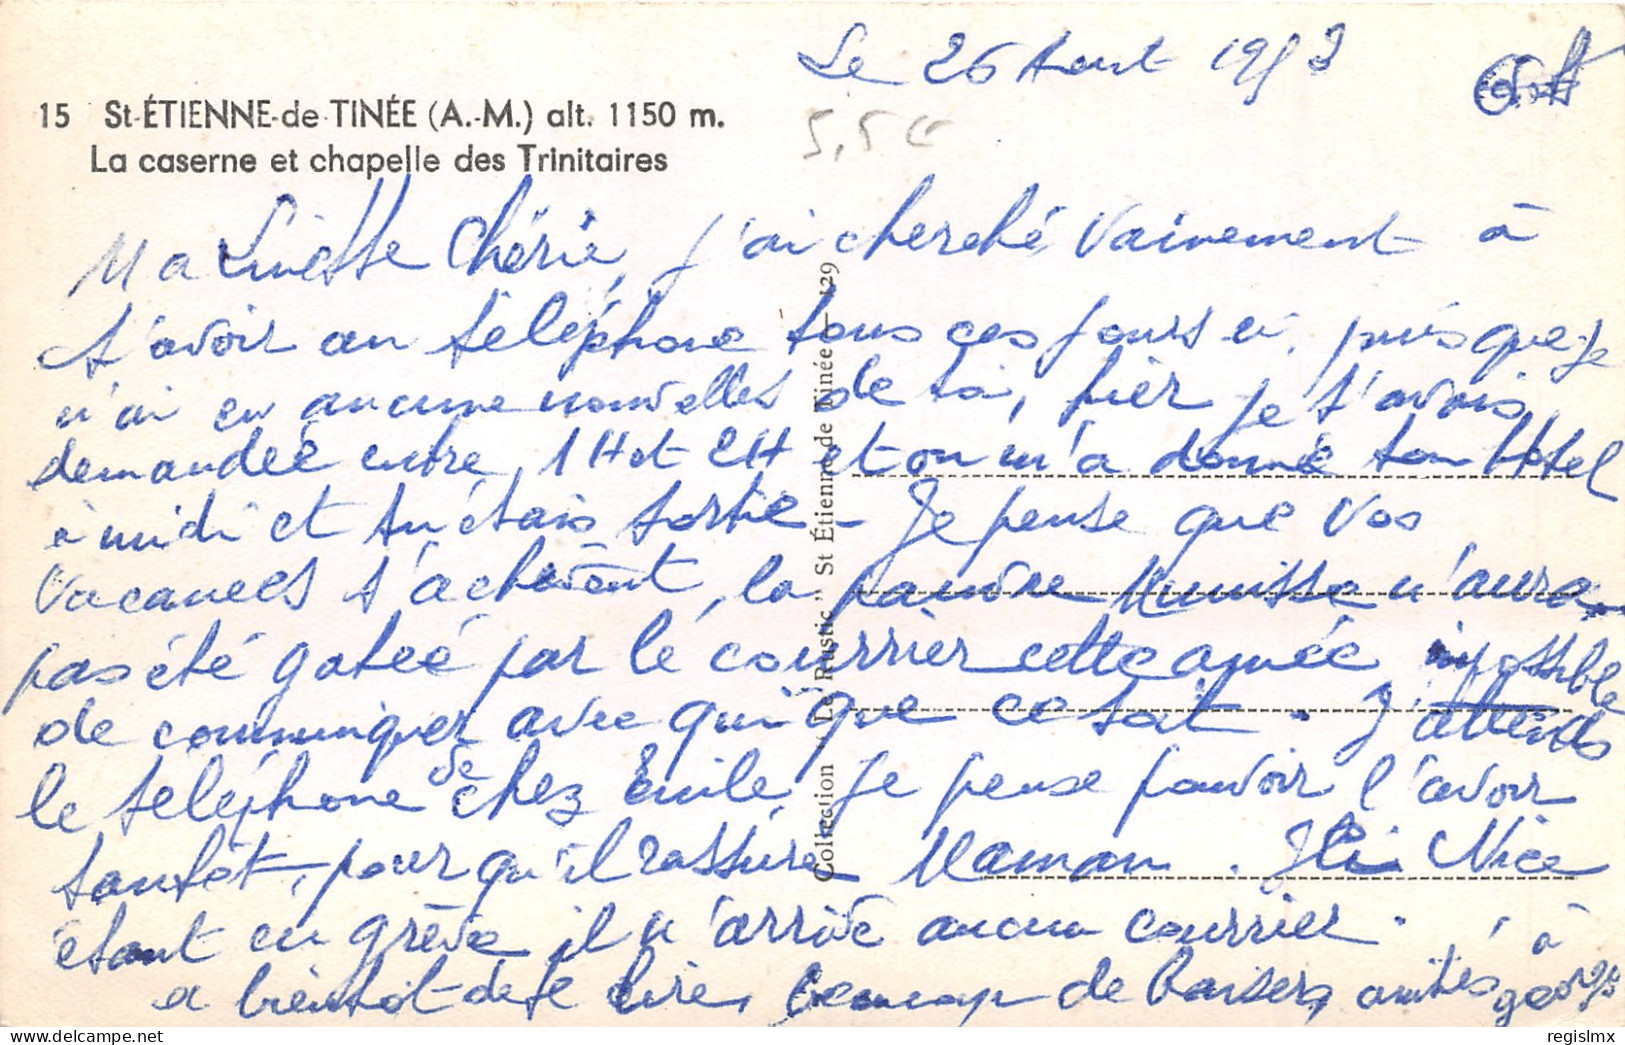 Le 26 Août 1953
15 St-ÉTIENNE-de-TINÉE (A.-M.) alt. 1150 m.
La caserne et chapelle des Trinitaires
5,5 €
Ma Linette Chérie, j'ai cherché vainement à
t'avoir au téléphone tous ces jours ci, puisque je
n'ai eu aucune nouvelles de toi, hier je t'avais
demandée entre 1H et 2H et on m'a donné ton Hotel
à midi et tu étais sortie - Je pense que vos
vacances s'achèvent, la pauvre n'aura
pas été gatée par le courrier cette année impossible
de communiquer avec qui que ce soit. J'attends
le téléphone de chez Emile, je pense pouvoir l'avoir
tantôt, pour qu'il rassure Maman. Ici Nice
étant en grève il n'arrive aucun courrier.
a bientôt de te lire, beaucoup de baisers, amitiés à
Georges
Collection "Le Rustic" St Étienne de Tinée — 129
regislmx
delcampe.net